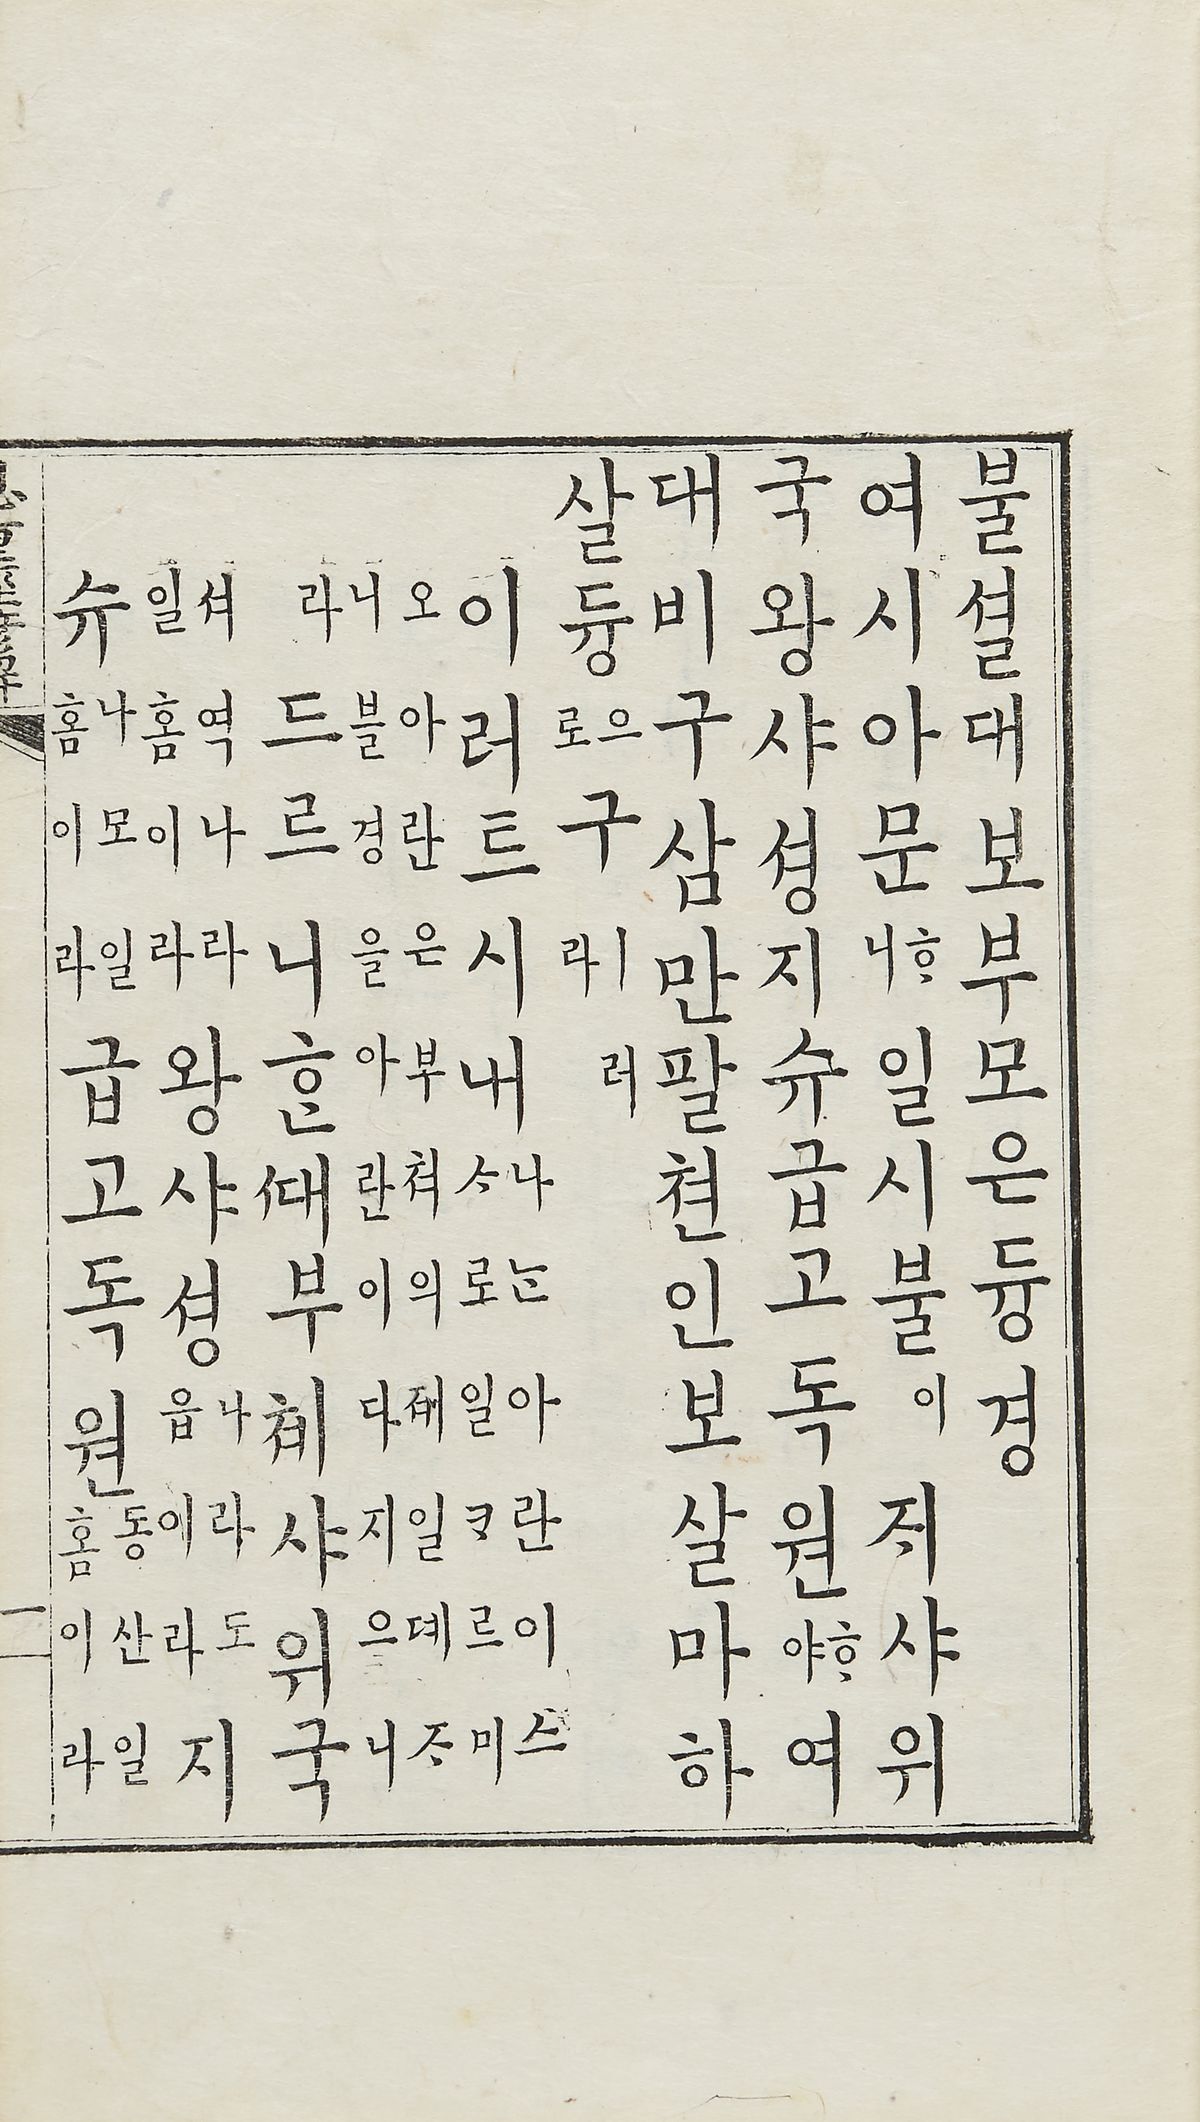 불셜대보부모은듕경
여시아문ᄒᆞ니일시불이ᄌᆡ샤위
국왕샤셩지슈급고독원ᄒᆞ야여
대비구삼만팔쳔인보살마하
살듕으로구ㅣ러라
이러트시내나ᄂᆞᆫ아란이스ᄉᆞ로일ᄏᆞ르미
오아란은부쳐의졔일뎨ᄌᆞ니블경을아란이다지으니
라드르니ᄒᆞᆫᄯᅢ부쳬샤위국
셔역나라일홈이라왕샤셩나라도읍이라지
슈나모일홈이라급고독원동산일홈이라
一